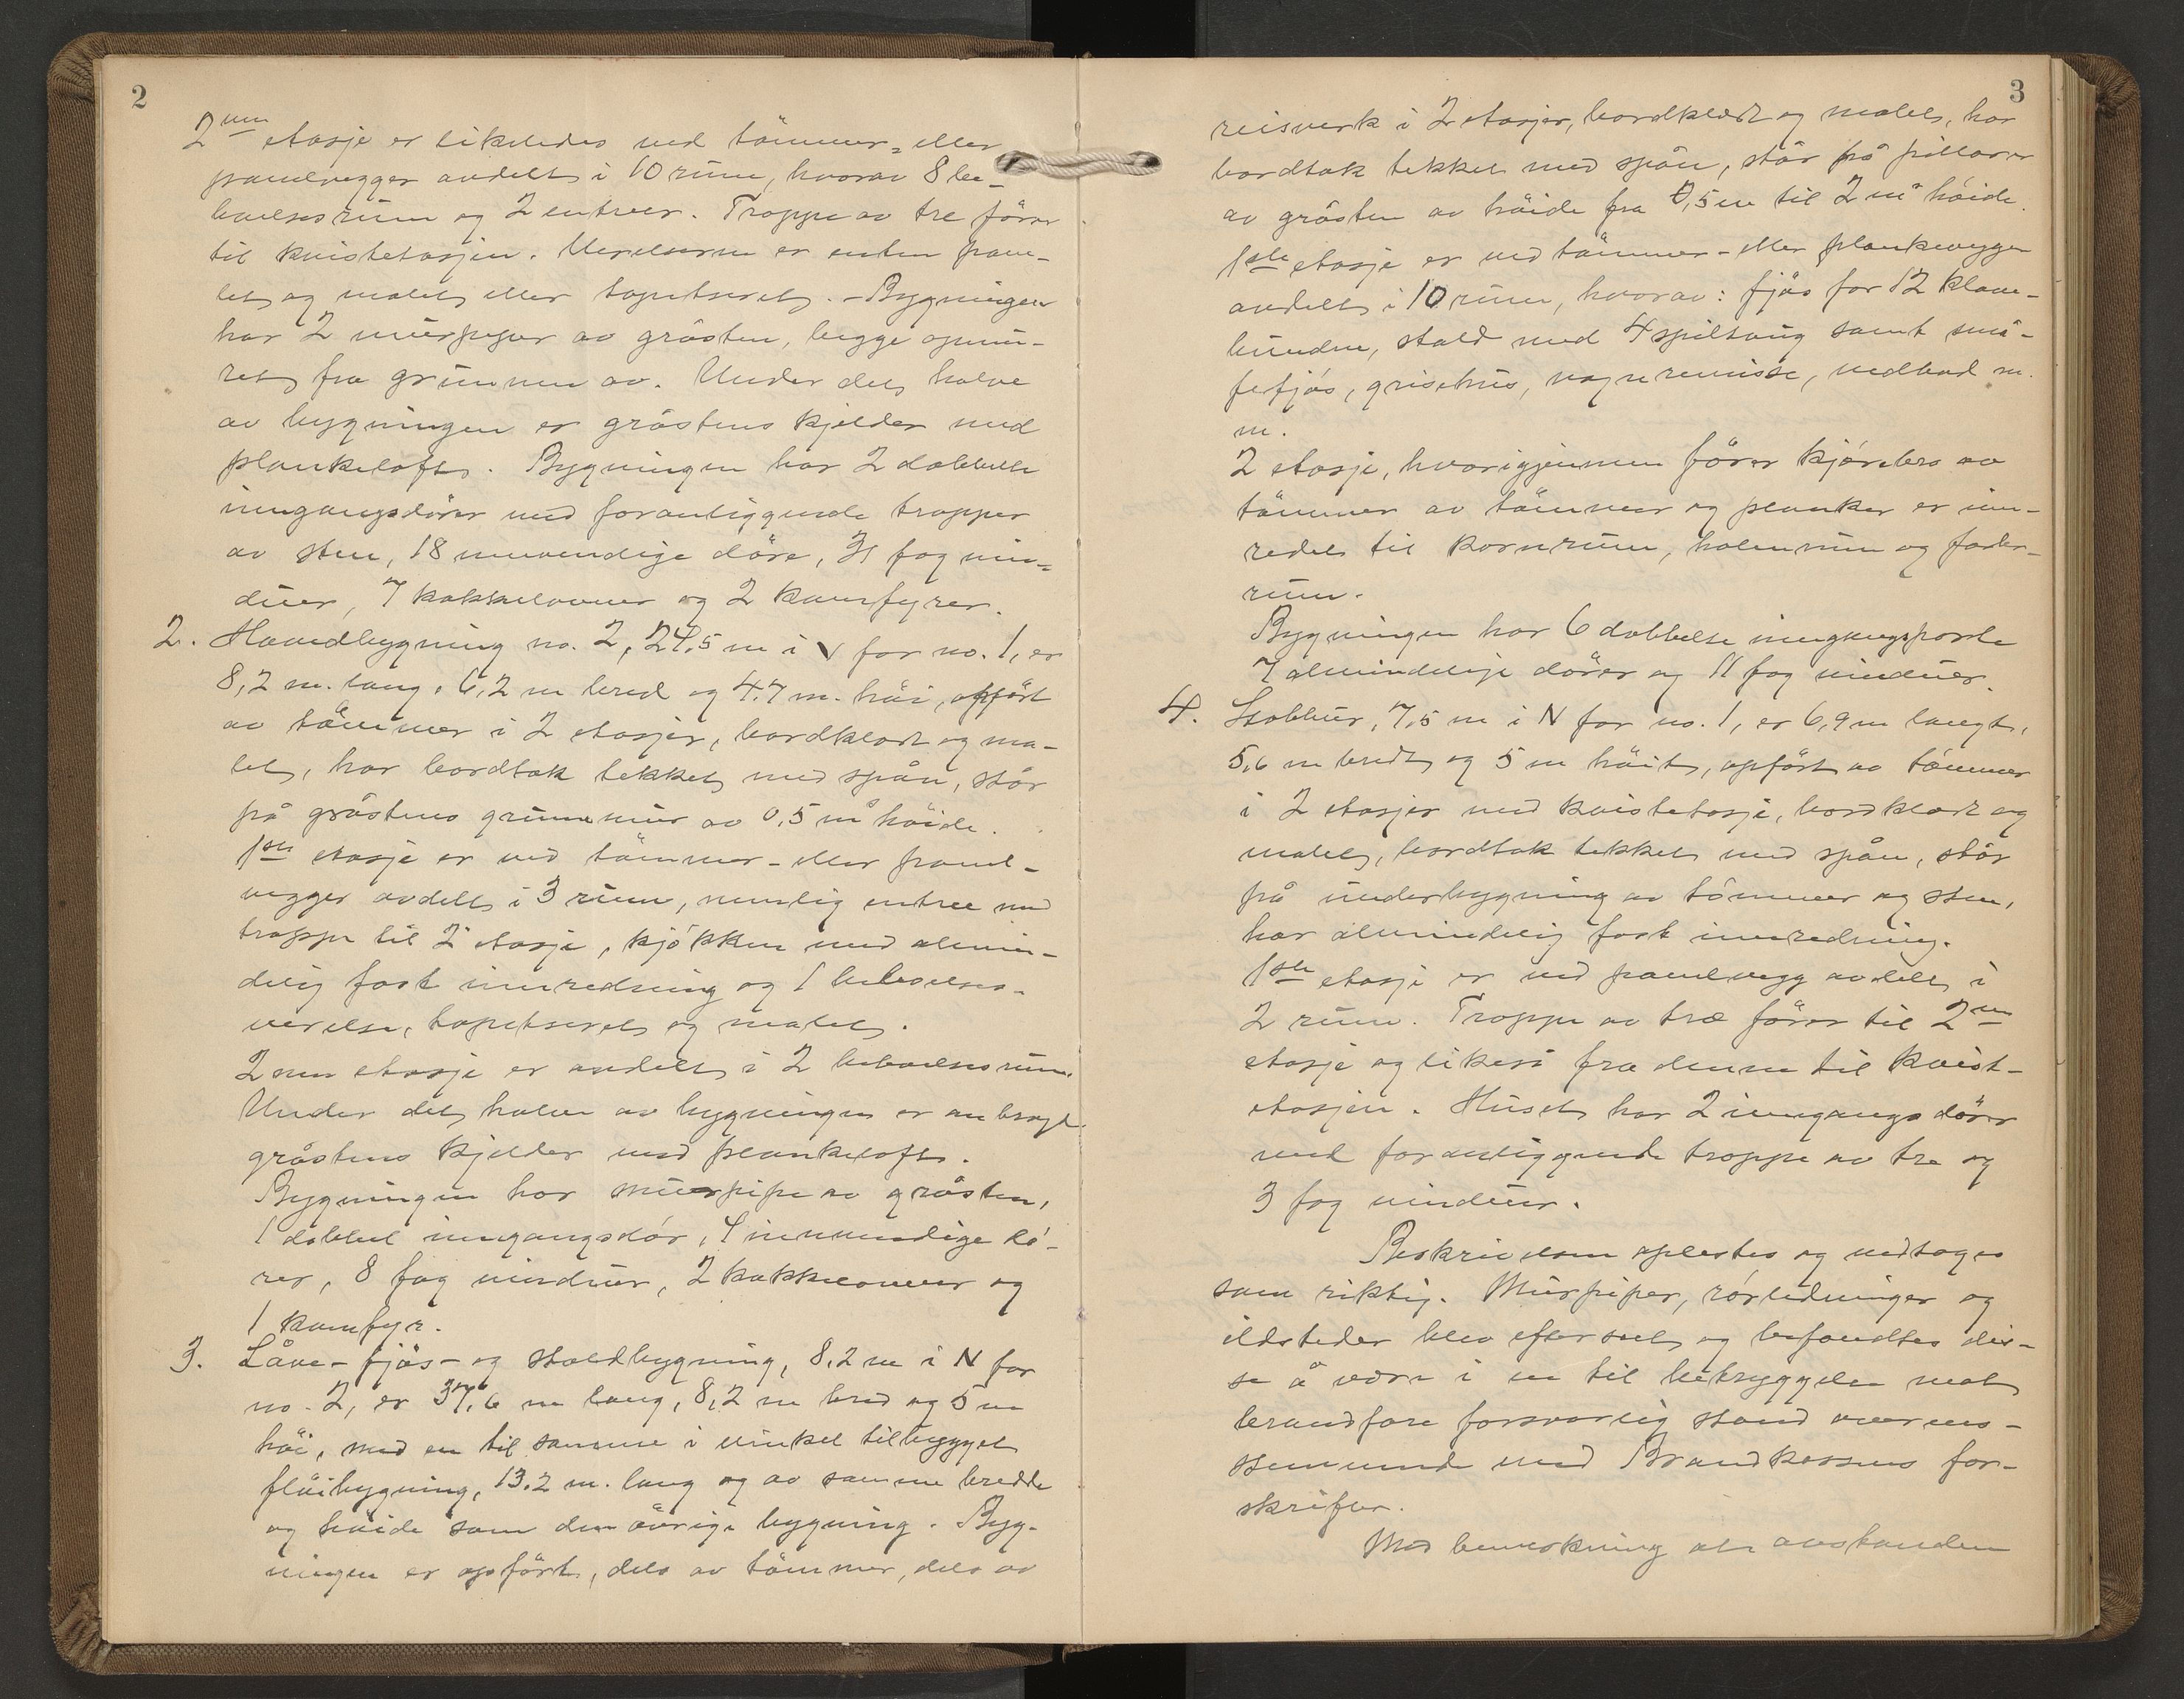 2
2nen etasje er likeledes ved tömmer- eller
panelvegger avdelt i 10 rum, hvorav 8 be-
boelsesrum og 2 entreer. Trappe av tre förer
til kvistetasjen. Verelserne er enten pane-
let og malet eller tapetseret. - Bygningen
har 2 murpiper av gråsten, begge opmu-
ret fra grunnen av. Under det halve
av bygningen er gråstens kjelder med
plankeloft. Bygningen har 2 dobbelte
inngangsdörer med foranliggende trapper
av sten, 18 innvendige döre, 31 fag vin-
duer, 7 kakkelovner og 2 komfyrer.
2. Hovedbygning no. 2, 24,5 m i V for no. 1, er
8,2 m. lang, 6,2 m bred og 4,7 m. höi, opfört
av tömmer i 2 etasjer, bordklædt og ma-
let, har bordtak tekket med spån, står
på gråstens grunnmur av 0,5 m høide.
1ste etasje er ved tömmer- eller panel-
vegger avdelt i 3 rum, nemlig entree med
trappe til 2 etasje, kjökken med almin-
delig fast innredning og 1 beboelses-
værelse, tapetseret og malet.
2nen etasje er avdelt i 2 beboelsesrum.
Under det halve av bygningen er anbragt
gråstens kjelder med plankeloft.
Bygningen har murpipe av gråsten,
1 dobbel inngangsdör, 4 innvendige dö-
rer, 8 fag vinduer, 2 kakkelovner og
1 komfyr.
3. Låve- fjös- og staldbygning, 8,2 m i N for
no. 2, er 37,6 m lang, 8,2 m bred og 5 m
höi, med en til samme i vinkel tilbygget
flöibygning, 13,2 m. lang og av samme bredde
og höide som den övrige bygning. Byg-
ningen er opfört, dels av tömmer, dels av
3
reisverk i 2 etasjer, bordklædt og malet, har
bordtak tekket med spån, står på pillarer
av gråsten av höide fra 0,5 m til 2 m höide.
1ste etasje er ved tömmer- eller plankevegger
avdelt i 10 rum, hvorav: fjös for 12 klave-
bundne, stald med 4 spiltaug samt små-
fefjös, grisehus, vognremisse, vedbod m.
m.
2 etasje, hvorigjennem förer kjörebro av
tömmer av tömmer og planker er inn-
redet til kornrum, halmrum og foder-
rum.
Bygningen har 6 dobbelte inngangsporte
7 almindelige dörer og 11 fag vinduer.
4. Stabbur, 7,5 m i N for no. 1, er 6,9 m langt,
5,6 m bredt og 5 m höit, opfört av tömmer
i 2 etasjer med kvistetasje, bordklædt og
malet, bordtak tekket med spån, står
på underbygning av tömmer og sten,
har almindelig fast innredning.
1ste etasje er ved panelvegg avdelt i
2 rum. Trappe av træ förer til 2nen
etasje og likeså fra denne til kvist-
etasjen. Huset har 2 inngangsdörer
med foranliggende trappe av tre og
3 fag vinduer.
Beskrivelsen oplestes og vedtoges
som riktig. Murpiper, rörledninger og
ildsteder blev efterset og befandtes dis-
se å være i en til betryggelse mot
brandfare forsvarlig stand overens-
stemmende med Brandkassens for-
skrifter.
Med bemerkning at avstanden